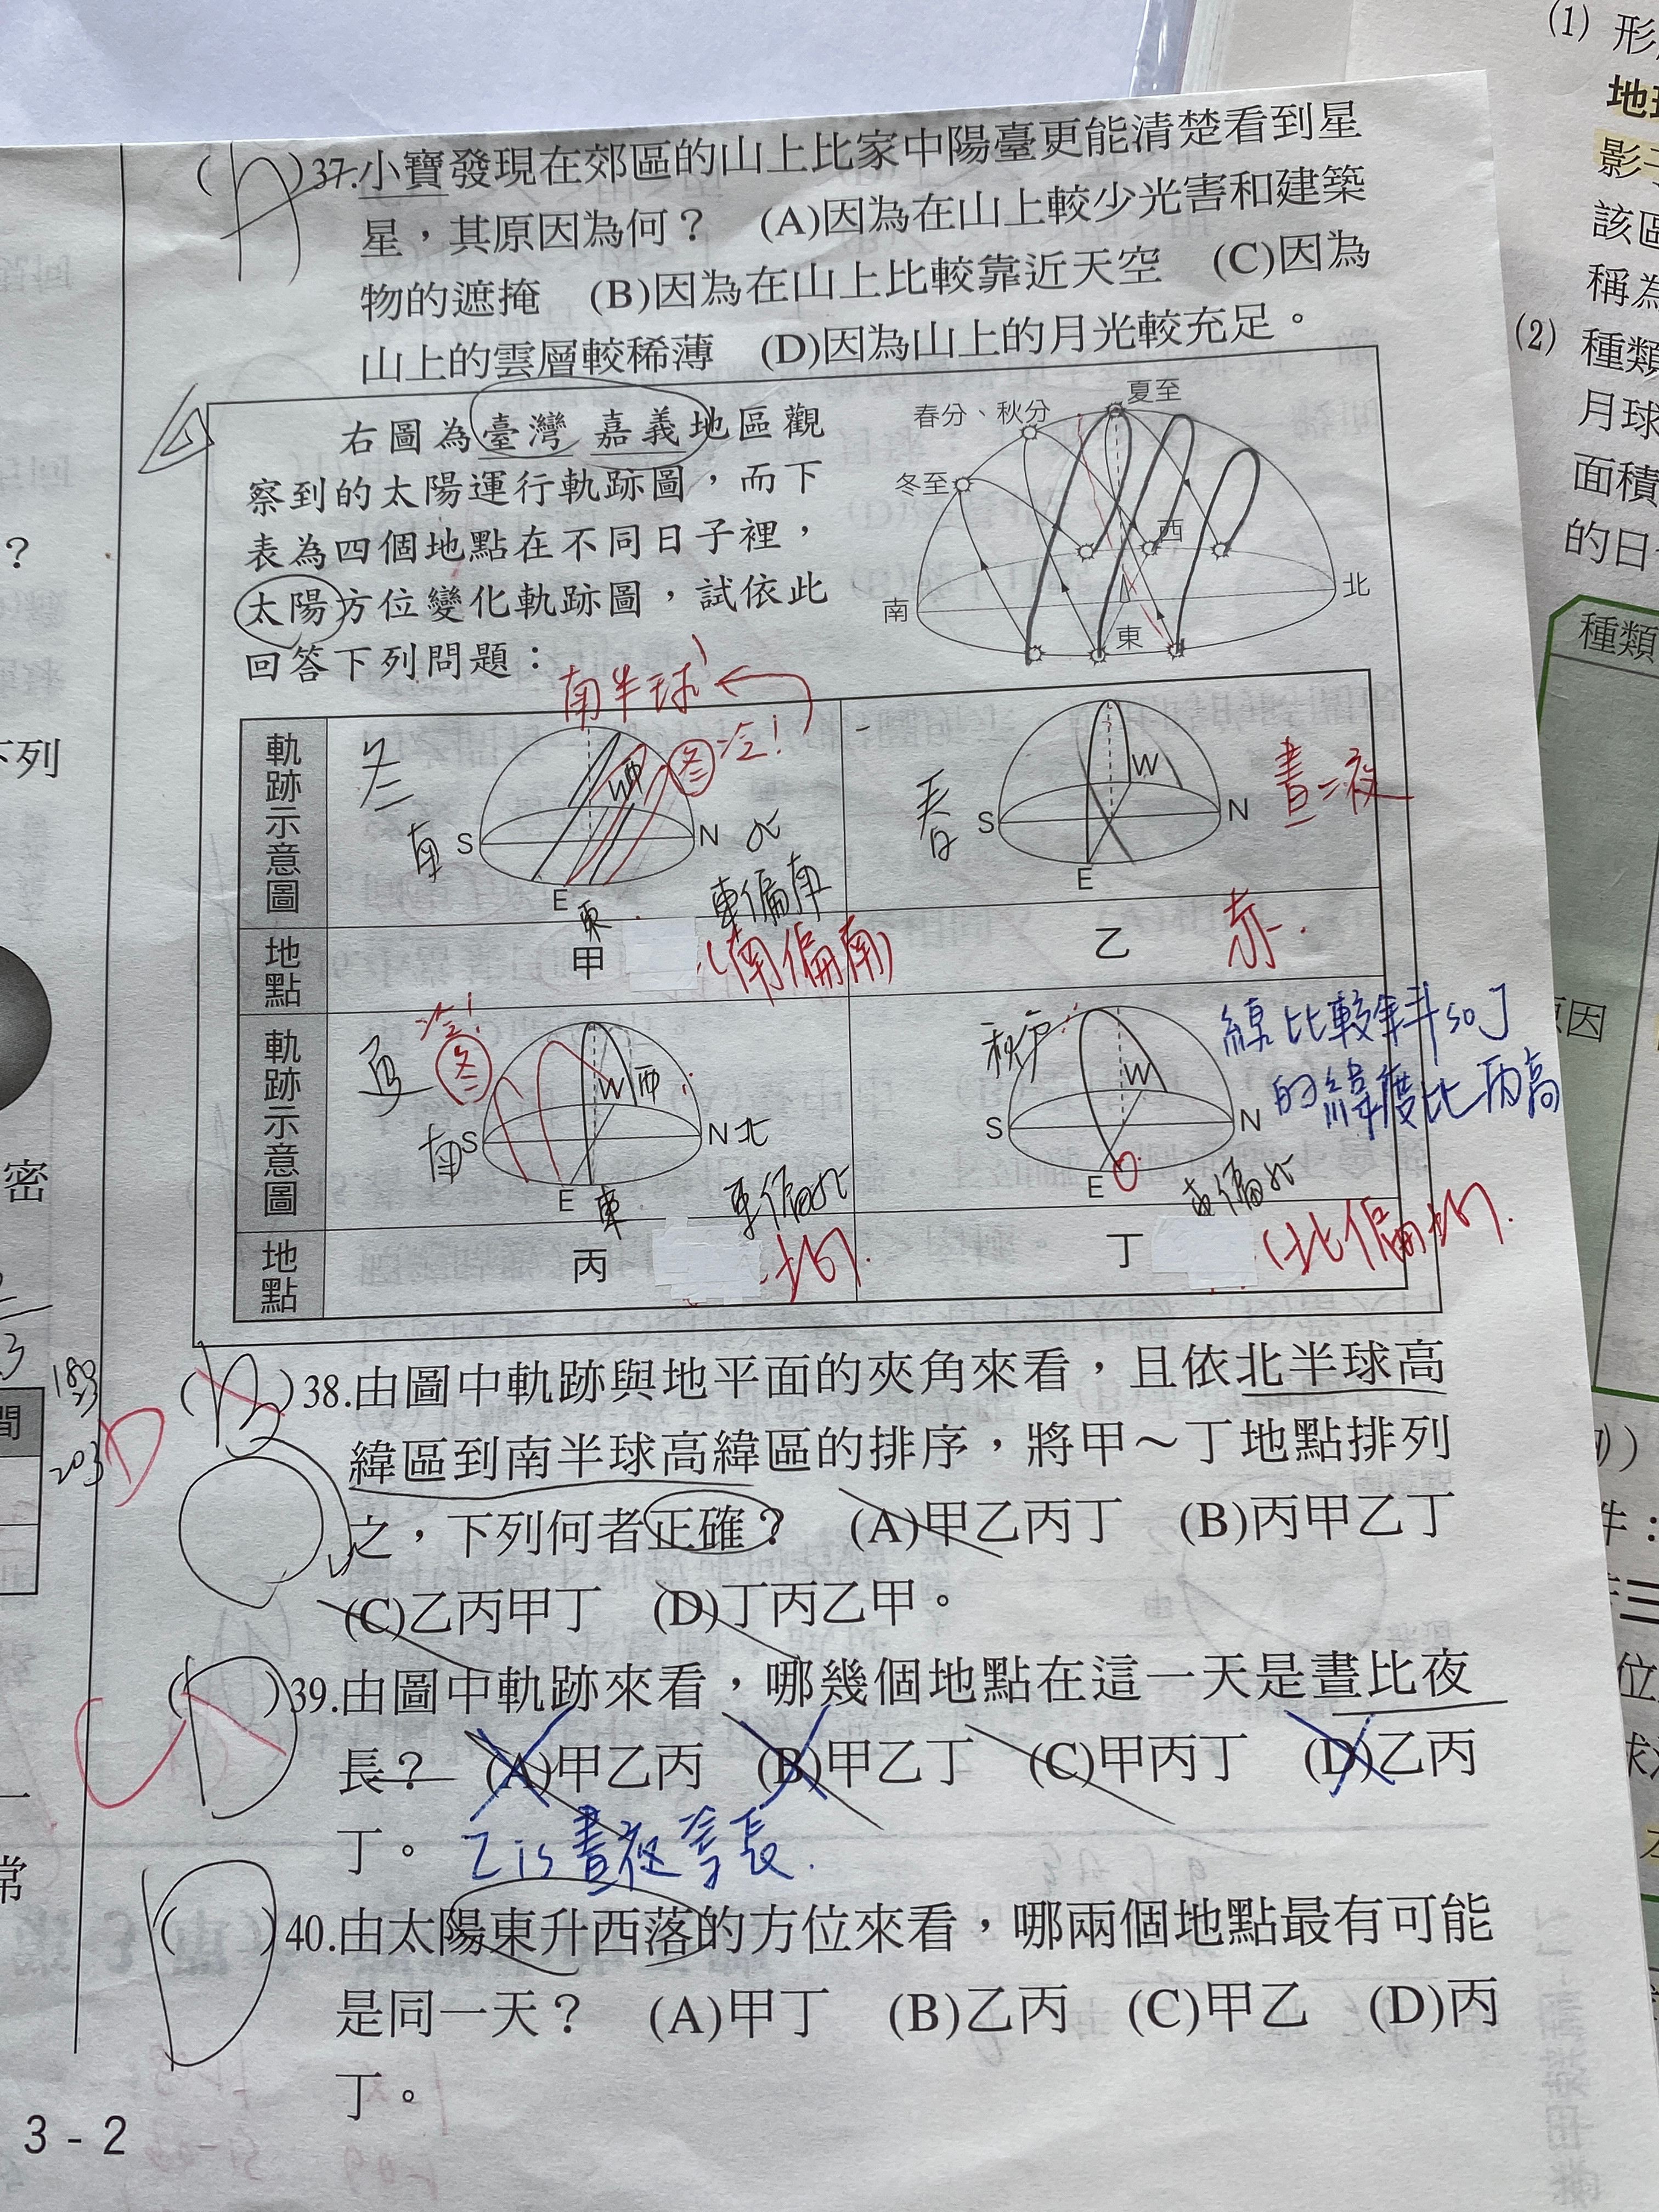 (A)37.小寶發現在郊區的山上比家中陽臺更能清楚看到星
星，其原因為何？ (A)因為在山上較少光害和建築
物的遮掩 (B)因為在山上比較靠近天空 (C)因為
山上的雲層較稀薄 (D)因為山上的月光較充足。
右圖為臺灣 嘉義地區觀
察到的太陽運行軌跡圖，而下
表為四個地點在不同日子裡，
太陽方位變化軌跡圖，試依此
回答下列問題：
春分、秋分
夏至
冬至
西
南
北
東
南半球
軌跡示意圖
冬
南
S
W
西
N
北
E
東
冬
冷!
東偏南
春
S
W
N
E
晝=夜
地點
甲
(南偏南)
乙
赤.
軌跡示意圖
冷!
冬
南
S
W
西
N
北
E
東
東偏北
S
W
N
E
東偏北
線比較斜so丁
的緯度比丙高
地點
丙
丁
(北偏北的).
(B)38.由圖中軌跡與地平面的夾角來看，且依北半球高
緯區到南半球高緯區的排序，將甲～丁地點排列
之，下列何者正確？ (A)甲乙丙丁 (B)丙甲乙丁
(C)乙丙甲丁 (D)丁丙乙甲。
D
180
23
203
( )39.由圖中軌跡來看，哪幾個地點在這一天是晝比夜
長？ (A)甲乙丙 (B)甲乙丁 (C)甲丙丁 (D)乙丙
丁。 乙is晝夜等長.
C
(D)40.由太陽東升西落的方位來看，哪兩個地點最有可能
是同一天？ (A)甲丁 (B)乙丙 (C)甲乙 (D)丙
丁。
3-2
？
下列
密
間
常
(1) 形
地
影
該區
稱為
(2) 種類
月球
面積
的日
種類
原因
件：